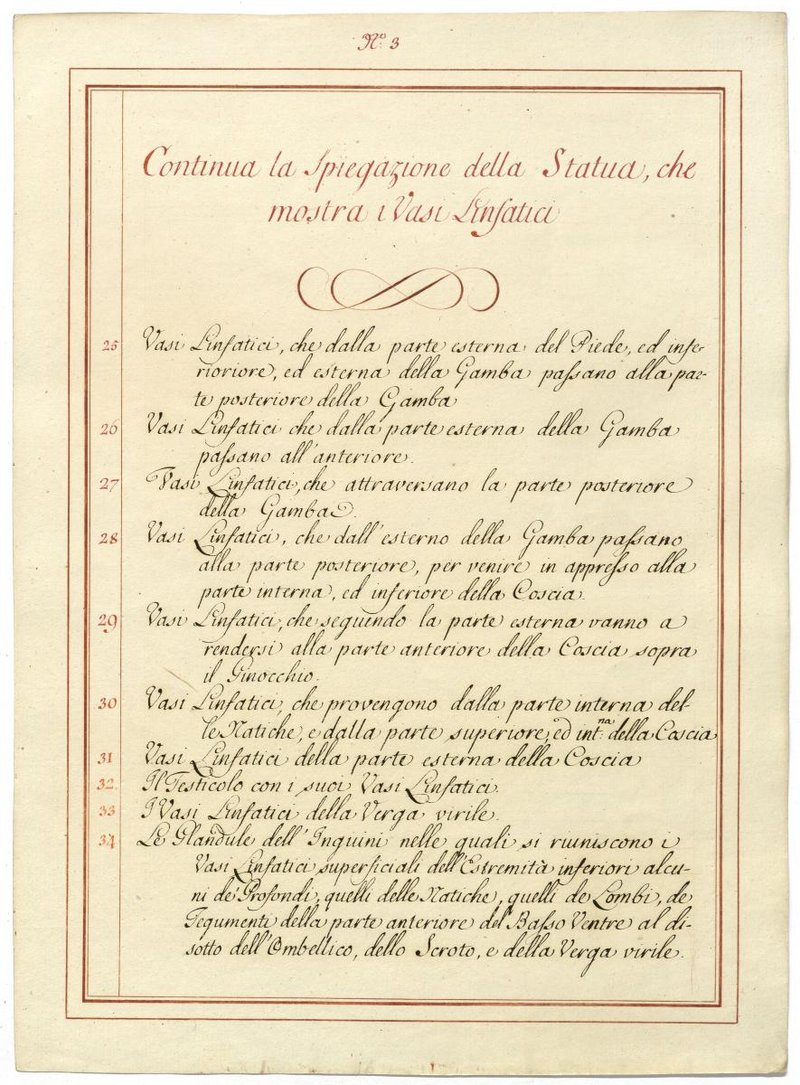 N.º 3
Continua la Spiegazione della Statua, che
mostra i Vasi Linfatici
25 Vasi Linfatici, che dalla parte esterna del Piede, ed infe-
rioriore, ed esterna della Gamba passano alla par-
te posteriore della Gamba
26 Vasi Linfatici che dalla parte esterna della Gamba
passano all'anteriore.
27 Vasi Linfatici, che attraversano la parte posteriore
della Gamba.
28 Vasi Linfatici, che dall'esterno della Gamba passano
alla parte posteriore, per venire in appresso alla
parte interna, ed inferiore della Coscia.
29 Vasi Linfatici, che seguendo la parte esterna vanno a
rendersi alla parte anteriore della Coscia sopra
il Ginocchio.
30 Vasi Linfatici, che provengono dalla parte interna del-
le Natiche, e dalla parte superiore, ed int.na della Coscia
31 Vasi Linfatici della parte esterna della Coscia
32 Il Testicolo con i suoi Vasi Linfatici.
33 I Vasi Linfatici della Verga virile.
34 Le Glandule dell'Inguini nelle quali si riuniscono i
Vasi Linfatici superficiali dell'Estremità inferiori alcu-
ni de' Profondi, quelli delle Natiche, quelli de Lombi, de
Tegumenti della parte anteriore del Basso Ventre al di-
sotto dell'Ombellico, dello Scroto, e della Verga virile.